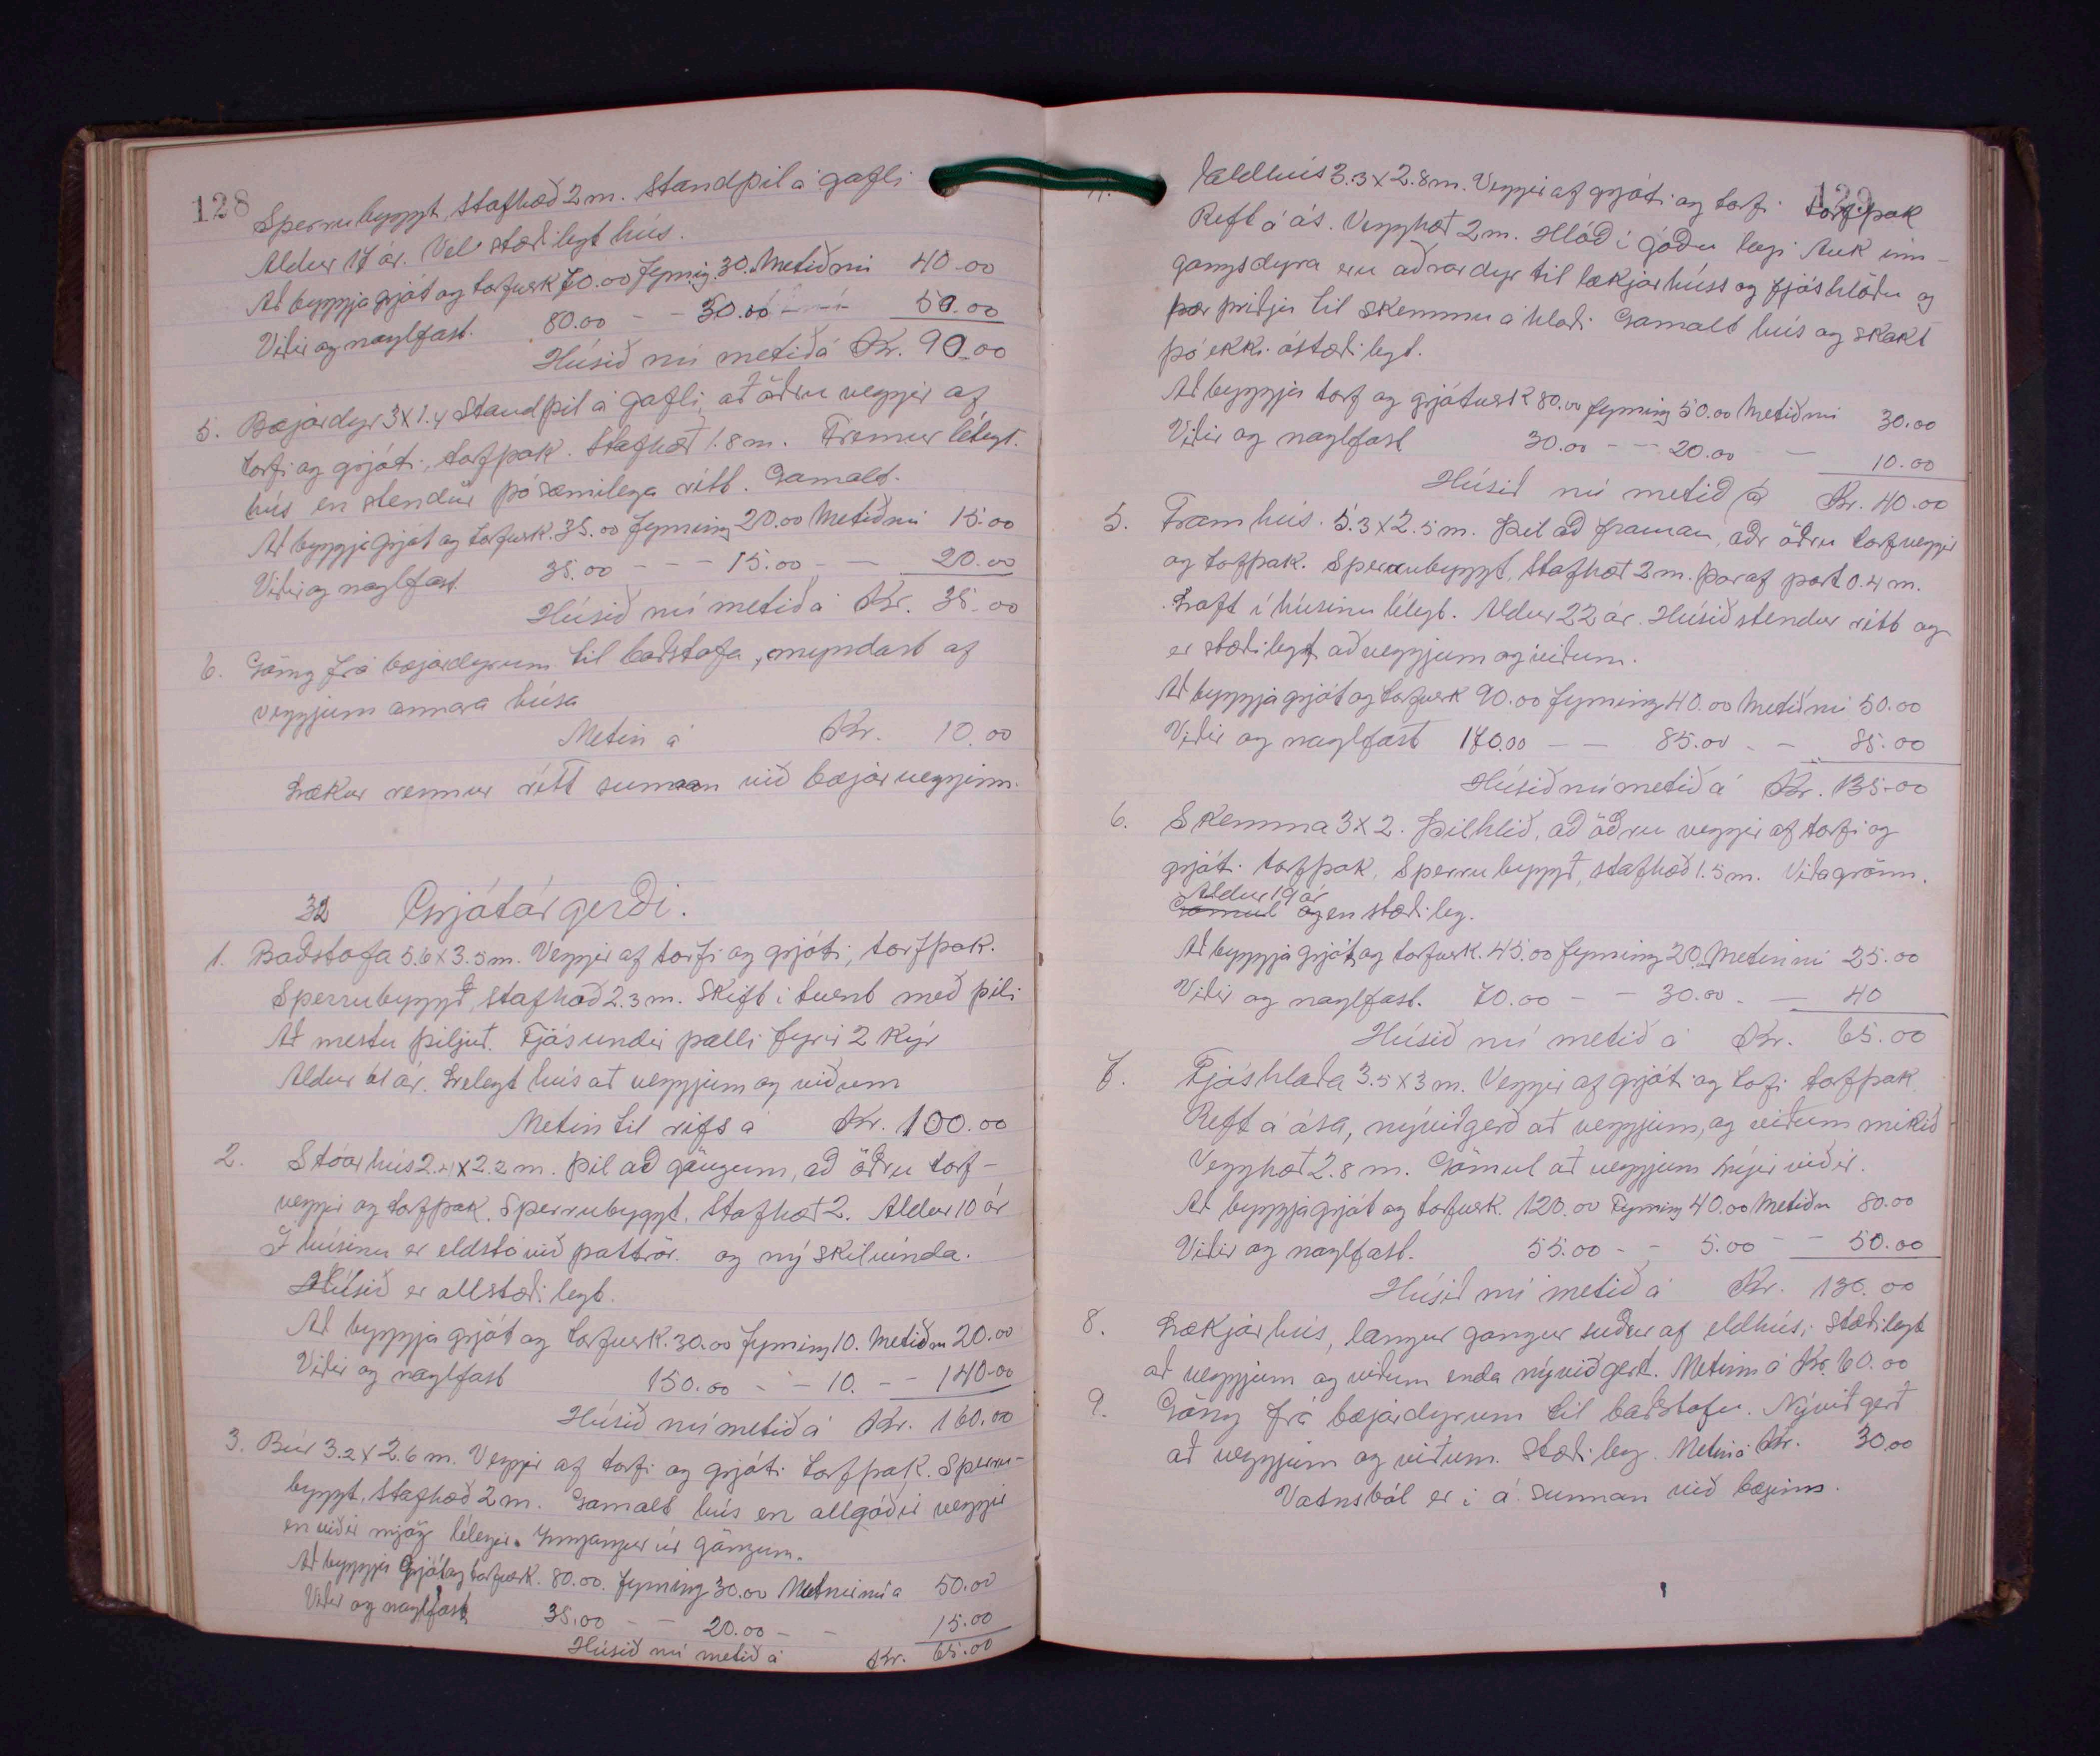 128
Sperrubyggt, Stafhæð 2 m. Standþil á gafli
Aldur 17 ár. Vel stæðilegt hús.
Að byggja grjót og torfverk 70.00 fyrning 30. Metið nú 40.00
Viðir og naglfast. 80.00 - - 30.00 50.00
Húsið nú metið á Kr. 90.00
5. Bæjardyr 3 x 1.4 Standþil á gafli, að öðru veggir af
torfi og grjóti, torfþak. Stafhæð 1.8 m. Fremur lélegt
hús en stendur þó sæmilega rétt. Gamalt.
Að byggja grjót og torfverk. 35.00 fyrning 20.00 Metið nú 15.00
Viðir og naglfast. 35.00 - - - 15.00 - - 20.00
Húsið nú metið á Kr. 35.00
6. Göng frá bæjardyrum til baðstofu, myndast af
veggjum annara húsa
Metin á Kr. 10.00
Lækur rennur rétt sunnan við bæjarvegginn.
32 Grjótárgerði.
1. Baðstofa 5.6 x 3.5 m. Veggir af torfi og grjóti, torfþak.
Sperrubyggð, stafhæð 2.3 m. Skift í tvent með þili
Að mestu þiljuð. Fjós undir palli fyrir 2 kýr
Aldur 61 ár. Lélegt hús að veggjum og viðum
Metin til rifs á Kr. 100.00
2. Stóarhús 2.4 x 2.2 m. Þil að göngum, að öðru torf-
veggir og torfþak. Sperrubyggt. Stafhæð 2. Aldur 10 ár
Í húsinu er eldstó við pottrör. og ný skilvinda.
Húsið er allstæðilegt.
Að byggja grjót og torfverk. 30.00 fyrning 10. Metið nú 20.00
Viðir og naglfast 150.00 - - 10. - - 140.00
Húsið nú metið á Kr. 160.00
3. Búr 3.2 x 2.6 m. Veggir af torfi og grjóti torfþak. Sperru-
byggt, Stafhæð 2 m. Gamalt hús en allgóðir veggir
en viðir mjög lélegir. Inngangur úr göngum.
Að byggja Grjót og torfverk. 80.00. fyrning 30.00 50.00
Viðir og naglfast 35.00 - - 20.00 - - 15.00
Húsið nú metið á Kr. 65.00
129
4. Eldhús 3.3 x 2.8 m. Veggir af grjóti og torfi torfþak
Reft á ás. Vegghæð 2 m. Hlóð í góðu lagi Auk inn-
gangsdyra eru aðrar dyr til lækjarhúss og fjóshlöðu og
þær þriðju til skemmu á hlaði Gamalt hús og skakt
þó ekki óstæðilegt.
Að byggja torf og grjótverk 80.00 fyrning 50.00 Metið nú 30.00
Viðir og naglfast 30.00 - - 20.00 - - 10.00
Húsið nú metið á Kr. 40.00
5. Framhús. 5.3 x 2.5 m. Þil að framan, að öðru torfveggir
og torfþak. Sperrubyggt, Stafhæð 2 m. þar af port 0.4 m.
Loft í húsinu lélegt. Aldur 22 ár. Húsið stendur rétt og
er stæðilegt að veggjum og viðum.
Að byggja grjót og torfverk 90.00 fyrning 40.00 Metið nú 50.00
Viðir og naglfast 170.00 - - 85.00 - - 85.00
Húsið nú metið á Kr. 135.00
6. Skemma 3 x 2. Þilhlið, að öðru veggir af torfi og
grjóti. torfþak, Sperrubyggð, stafhæð 1.5 m. Viðagrönn.
Aldur 19 ár
Gömul og en stæðileg.
Að byggja grjót og torfverk. 45.00 fyrning 20. Metin nú 25.00
Viðir og naglfast. 70.00 - - 30.00 - - 40
Húsið nú metið á Kr. 65.00
7. Fjóshlaða 3.5 x 3 m. Veggir af grjóti og torfi torfþak
Reft á ása, nýviðgerð að veggjum, og viðum mikið
Vegghæð 2.8 m. Gömul að veggjum nýir viðir.
Að byggja grjót og torfverk. 120.00 Fyrning 40.00 Metið nú 80.00
Viðir og naglfast. 55.00 - - 5.00 - - 50.00
Húsið nú metið á Kr. 130.00
8. Lækjarhús, langur gangur suður af eldhúsi stæðilegt
að veggjum og viðum enda nýviðgert. Metinn á Kr. 60.00
9. Göng frá bæjardyrum til baðstofu. Nýviðgerð
að veggjum og viðum. Stæðileg. Metin á Kr. 30.00
Vatnsból er í á sunnan við bæinn.